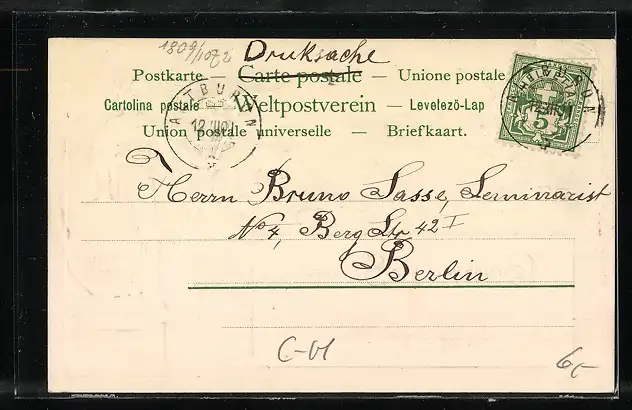 1809/1072
Drucksache
Postkarte — Carte postale — Unione postale
Cartolina postale — Weltpostverein — Levelező-Lap
Union postale universelle — Briefkaart.
12.III
5
Herrn Bruno Sasse, Seminarist
No 4, Berg Str 42 I
Berlin
C-01
6,-